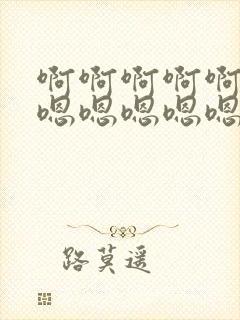 啊啊啊啊啊
嗯嗯嗯嗯嗯
路莫遥